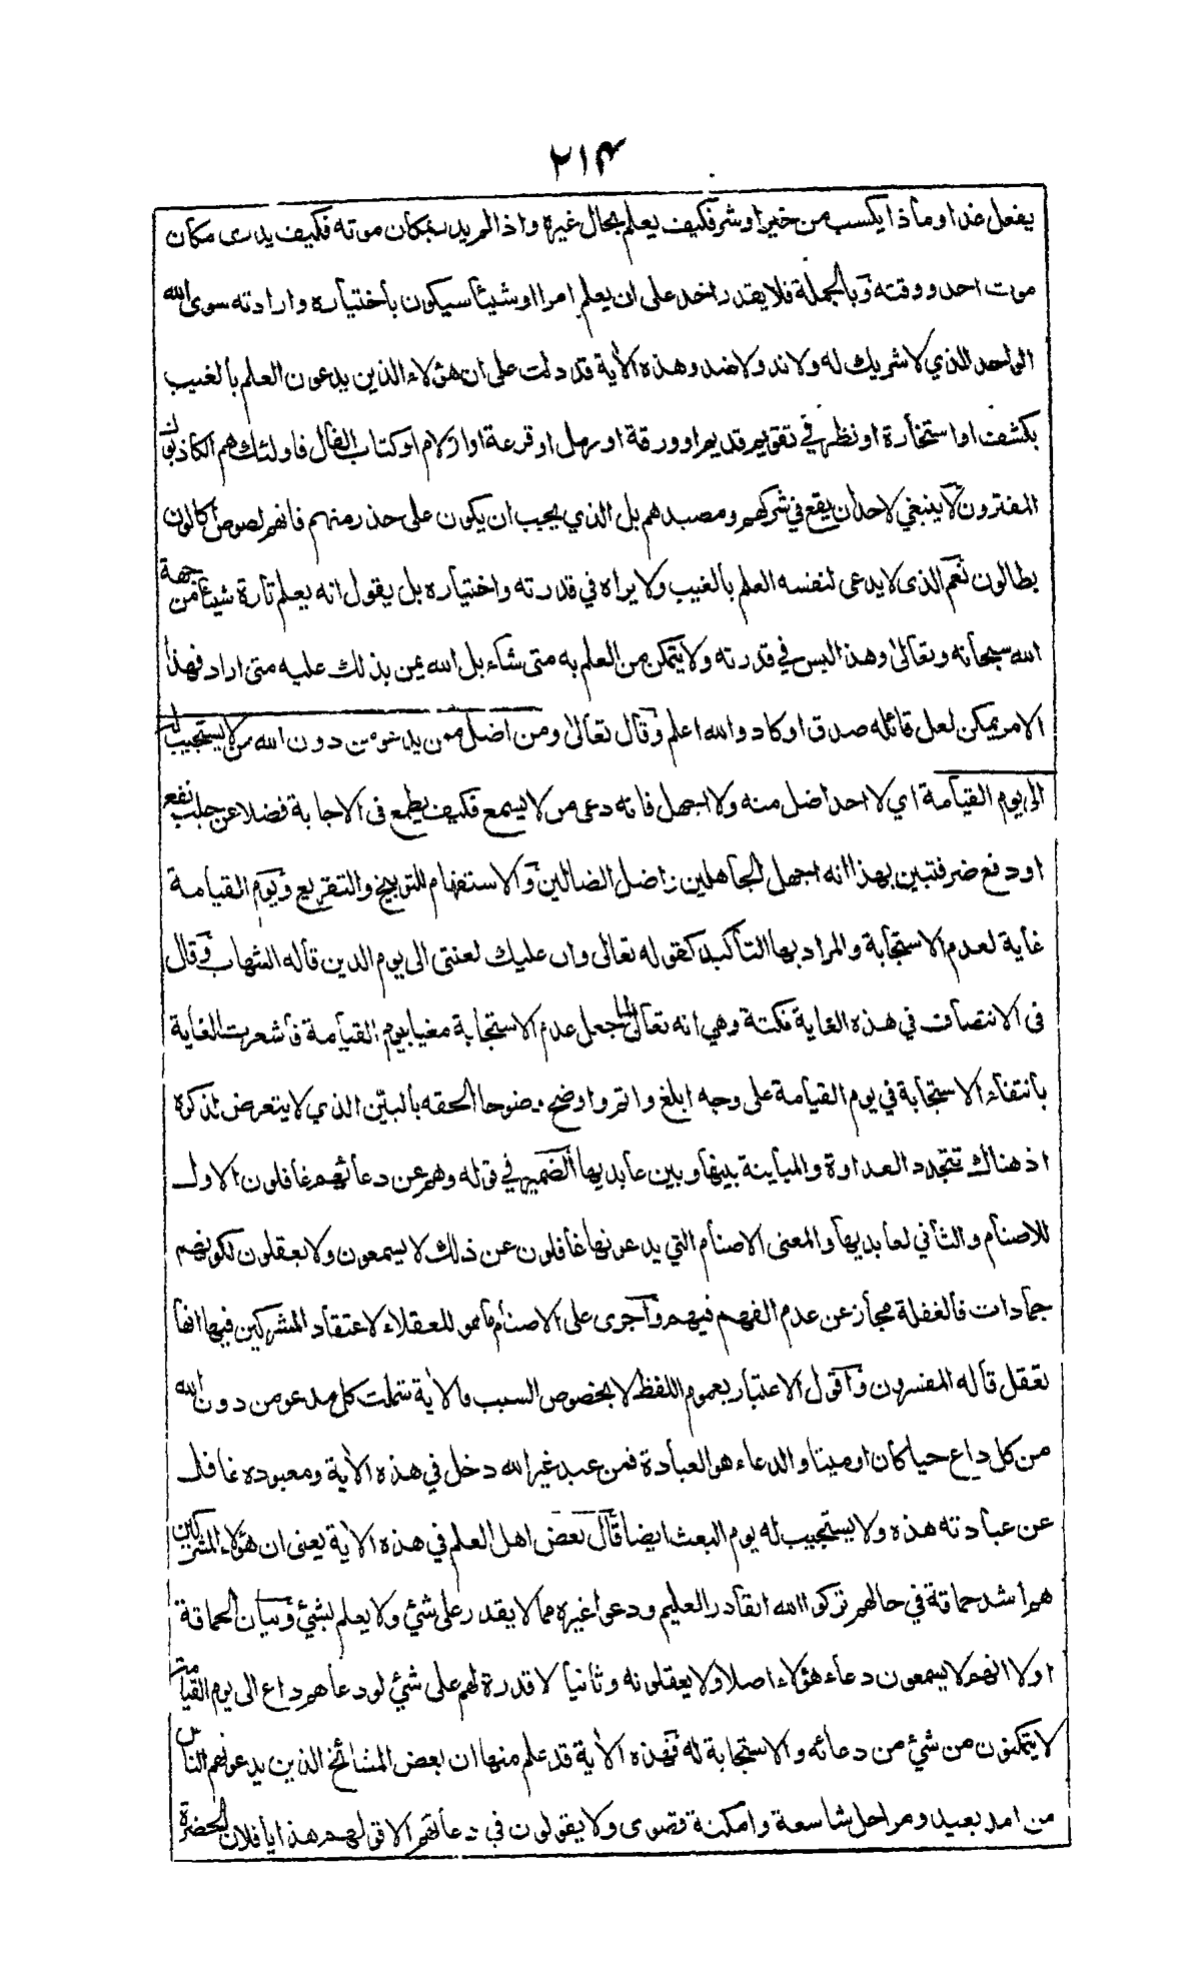 ٢١٤
يفعل غدا وماذا يكسب من خير او شر فكيف يعلم بحال غيره واذا لم يدر بمكان موته فكيف يدرى مكان
موت احد ووقته وبالجملة فلا يقدر احد على ان يعلم امرا او شيئا سيكون باختياره وارادته سوى الله
الواحد الذي لا شريك له ولا ند ولا ضد وهذه الآية قد دلت على ان هؤلاء الذين يدعون العلم بالغيب
بكشف او استخارة او نظر في تقويم قديم او ورقة او رمل او قرعة او ازلام او كتاب الفال فاولئك هم الكاذبون
المفترون لا ينبغي لاحد ان يقع في شركهم ومصيدهم بل الذي يجب ان يكون على حذر منهم فانهم لصوص اكالون
بطالون نعم الذى لا يدعى لنفسه العلم بالغيب ولا يراه في قدرته واختياره بل يقول انه يعلم تارة شيئا من جهة
الله سبحانه وتعالى وهذا ليس في قدرته ولا يتمكن من العلم به متى شاء بل الله يمن بذلك عليه متى اراد فهذا
الامر يمكن لعل قائله صدق او كاد والله اعلم وقال تعالى ومن اضل ممن يدعو من دون الله من لا يستجيب له
الى يوم القيامة اي لا احد اضل منه ولا اجهل فانه دعى من لا يسمع فكيف يطمع فى الاجابة فضلا عن جلب نفع
او دفع ضر فتبين بهذا انه اجهل الجاهلين واضل الضالين والاستفهام للتوبيخ والتقريع ويوم القيامة
غاية لعدم الاستجابة والمراد بها التأكيد كقوله تعالى وان عليك لعنتى الى يوم الدين قاله الشهاب وقال
فى الانتصاف في هذه الغاية نكتة وهي انه تعالى لما جعل عدم الاستجابة مغيا بيوم القيامة فأشعرت الغاية
بانتفاء الاستجابة في يوم القيامة على وجه ابلغ واتم واوضح وضوحا الحقه بالبيّن الذي لا يتعرض لذكره
اذ هناك تتجدد العداوة والمباينة بينها وبين عابديها والضمير في قوله وهم عن دعائهم غافلون الاول
للاصنام والثاني لعابديها والمعنى الاصنام التي يدعونها غافلون عن ذلك لا يسمعون ولا يعقلون لكونهم
جمادات فالغفلة مجاز عن عدم الفهم فيهم وآجرى على الاصنام ما هو للعقلاء لاعتقاد المشركين فيها انها
تعقل قاله المفسرون وآقول الاعتبار بعموم اللفظ لا بخصوص السبب فالآية شملت كل مدعو من دون الله
من كل داع حيا كان او ميتا والدعاء هو العبادة فمن عبد غير الله دخل في هذه الآية ومعبوده غافل
عن عبادته هذه ولا يستجيب له يوم البعث ايضا قال بعض اهل العلم في هذه الآية يعنى ان هؤلاء المشركين
هم اشد حماقة في حالهم تركوا الله القادر العليم ودعوا غيره مما لا يقدر على شئ ولا يعلم بشئ وبيان الحماقة
اولا انهم لا يسمعون دعاء هؤلاء اصلا ولا يعقلونه وثانيا لا قدرة لهم على شئ لو دعاهم داع الى يوم القيامة
لا يتمكنون من شئ من دعائه والاستجابة له فهذه الآية قد علم منها ان بعض المشائخ الذين يدعونهم الناس
من امد بعيد ومراحل شاسعة وامكنة قصوى ولا يقولون في دعائهم الا قولهم هذا يا فلان الحضرة